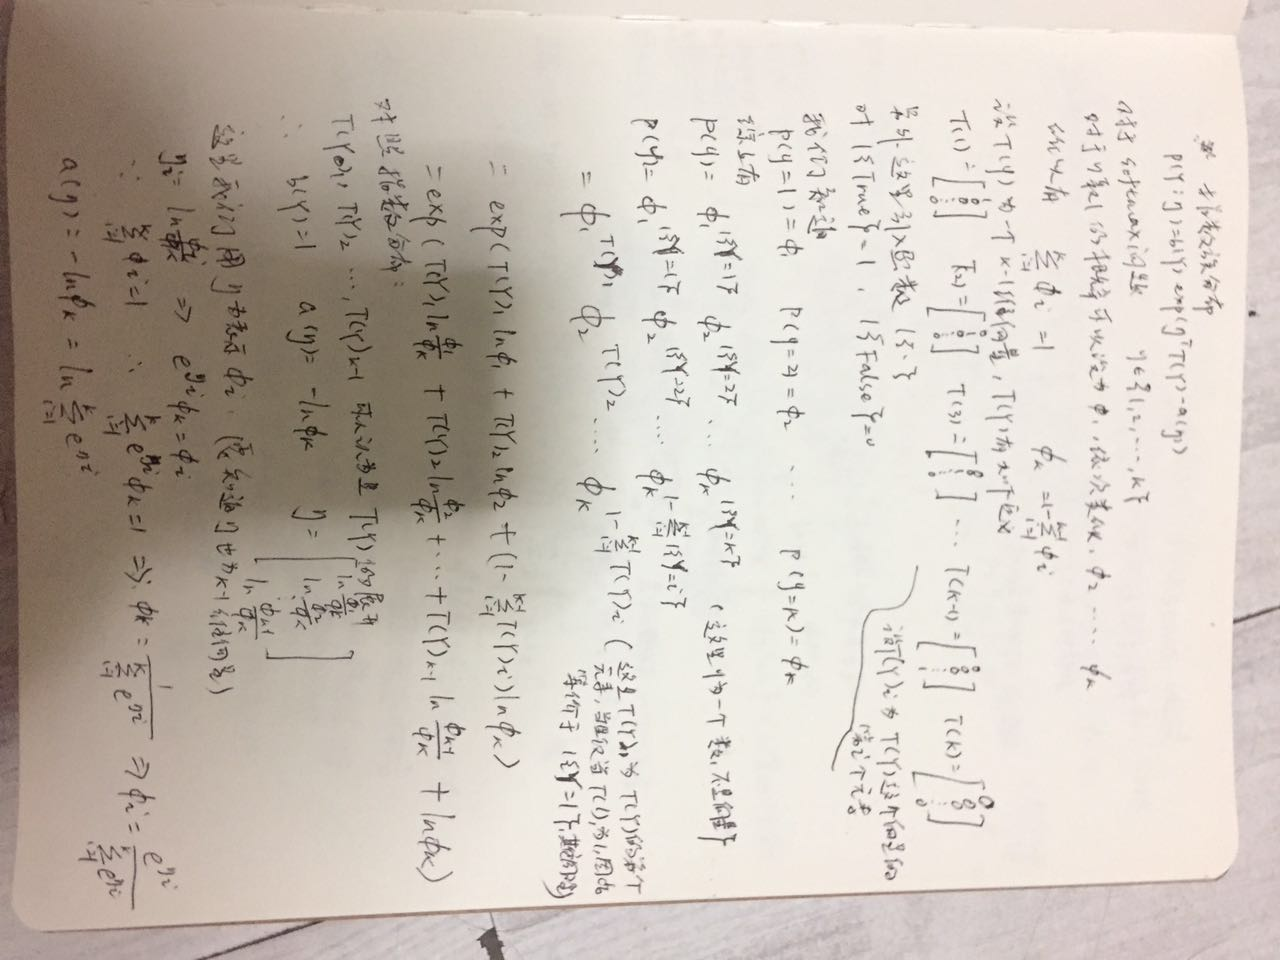 指数族分布
P(y;η)=b(y)exp(η^T T(y)-a(η))
对于softmax问题 y∈{1,2,...,k}
对于y取1的概率可以设为φ1,依次类似,φ2 ..... φk
所以有 Σ_{i=1}^{k} φi=1 φk=1-Σ_{i=1}^{k-1} φi
设T(y)为一个k-1维向量,T(y)有如下定义
T(1)=[1 0 ⋮ 0] T(2)=[0 1 ⋮ 0] T(3)=[0 0 1 ⋮ 0] ... T(k-1)=[0 0 ⋮ 1] T(k)=[0 0 ⋮ 0]
另外这里引入函数 1{·}
对 1{True}=1, 1{False}=0
设T(y)i为T(y)这个向量的
第i个元素
我们知道
P(y=1)=φ1 P(y=2)=φ2 ... P(y=k)=φk
综上有
P(y)=φ1^1{y=1} φ2^1{y=2} ... φk^1{y=k} (这里y为一个数,不是向量)
P(y)=φ1^1{y=1} φ2^1{y=2} .... φk^{1-Σ_{i=1}^{k-1} 1{y=i}}
=φ1^T(y)1 φ2^T(y)2 .... φk^{1-Σ_{i=1}^{k-1} T(y)i} (这里T(y)1为T(y)的第1个
元素,当且仅当T(1)1为1,因此
等价于1{y=1},其它同理)
=exp(T(y)1 lnφ1 + T(y)2 lnφ2 + (1-Σ_{i=1}^{k-1} T(y)i) lnφk)
=exp(T(y)1 ln φ1/φk + T(y)2 ln φ2/φk + ... + T(y)k-1 ln φk-1/φk + lnφk)
对照指数分布:
T(y)1, T(y)2 ..., T(y)k-1 可认为是T(y)的展开
∴ b(y)=1 a(η)=-lnφk η=[ln φ1/φk ln φ2/φk ⋮ ln φk-1/φk]
这里我们用η去表示φi.(需知道η也为k-1维向量)
ηi=ln φi/φk ⇒ e^ηi φk=φi
∵ Σ_{i=1}^{k} φi=1 ∴ Σ_{i=1}^{k} e^ηi φk=1 ⇒ φk=1/Σ_{i=1}^{k} e^ηi ⇒ φi=e^ηi/Σ_{i=1}^{k} e^ηi
a(η)=-lnφk=ln Σ_{i=1}^{k} e^ηi